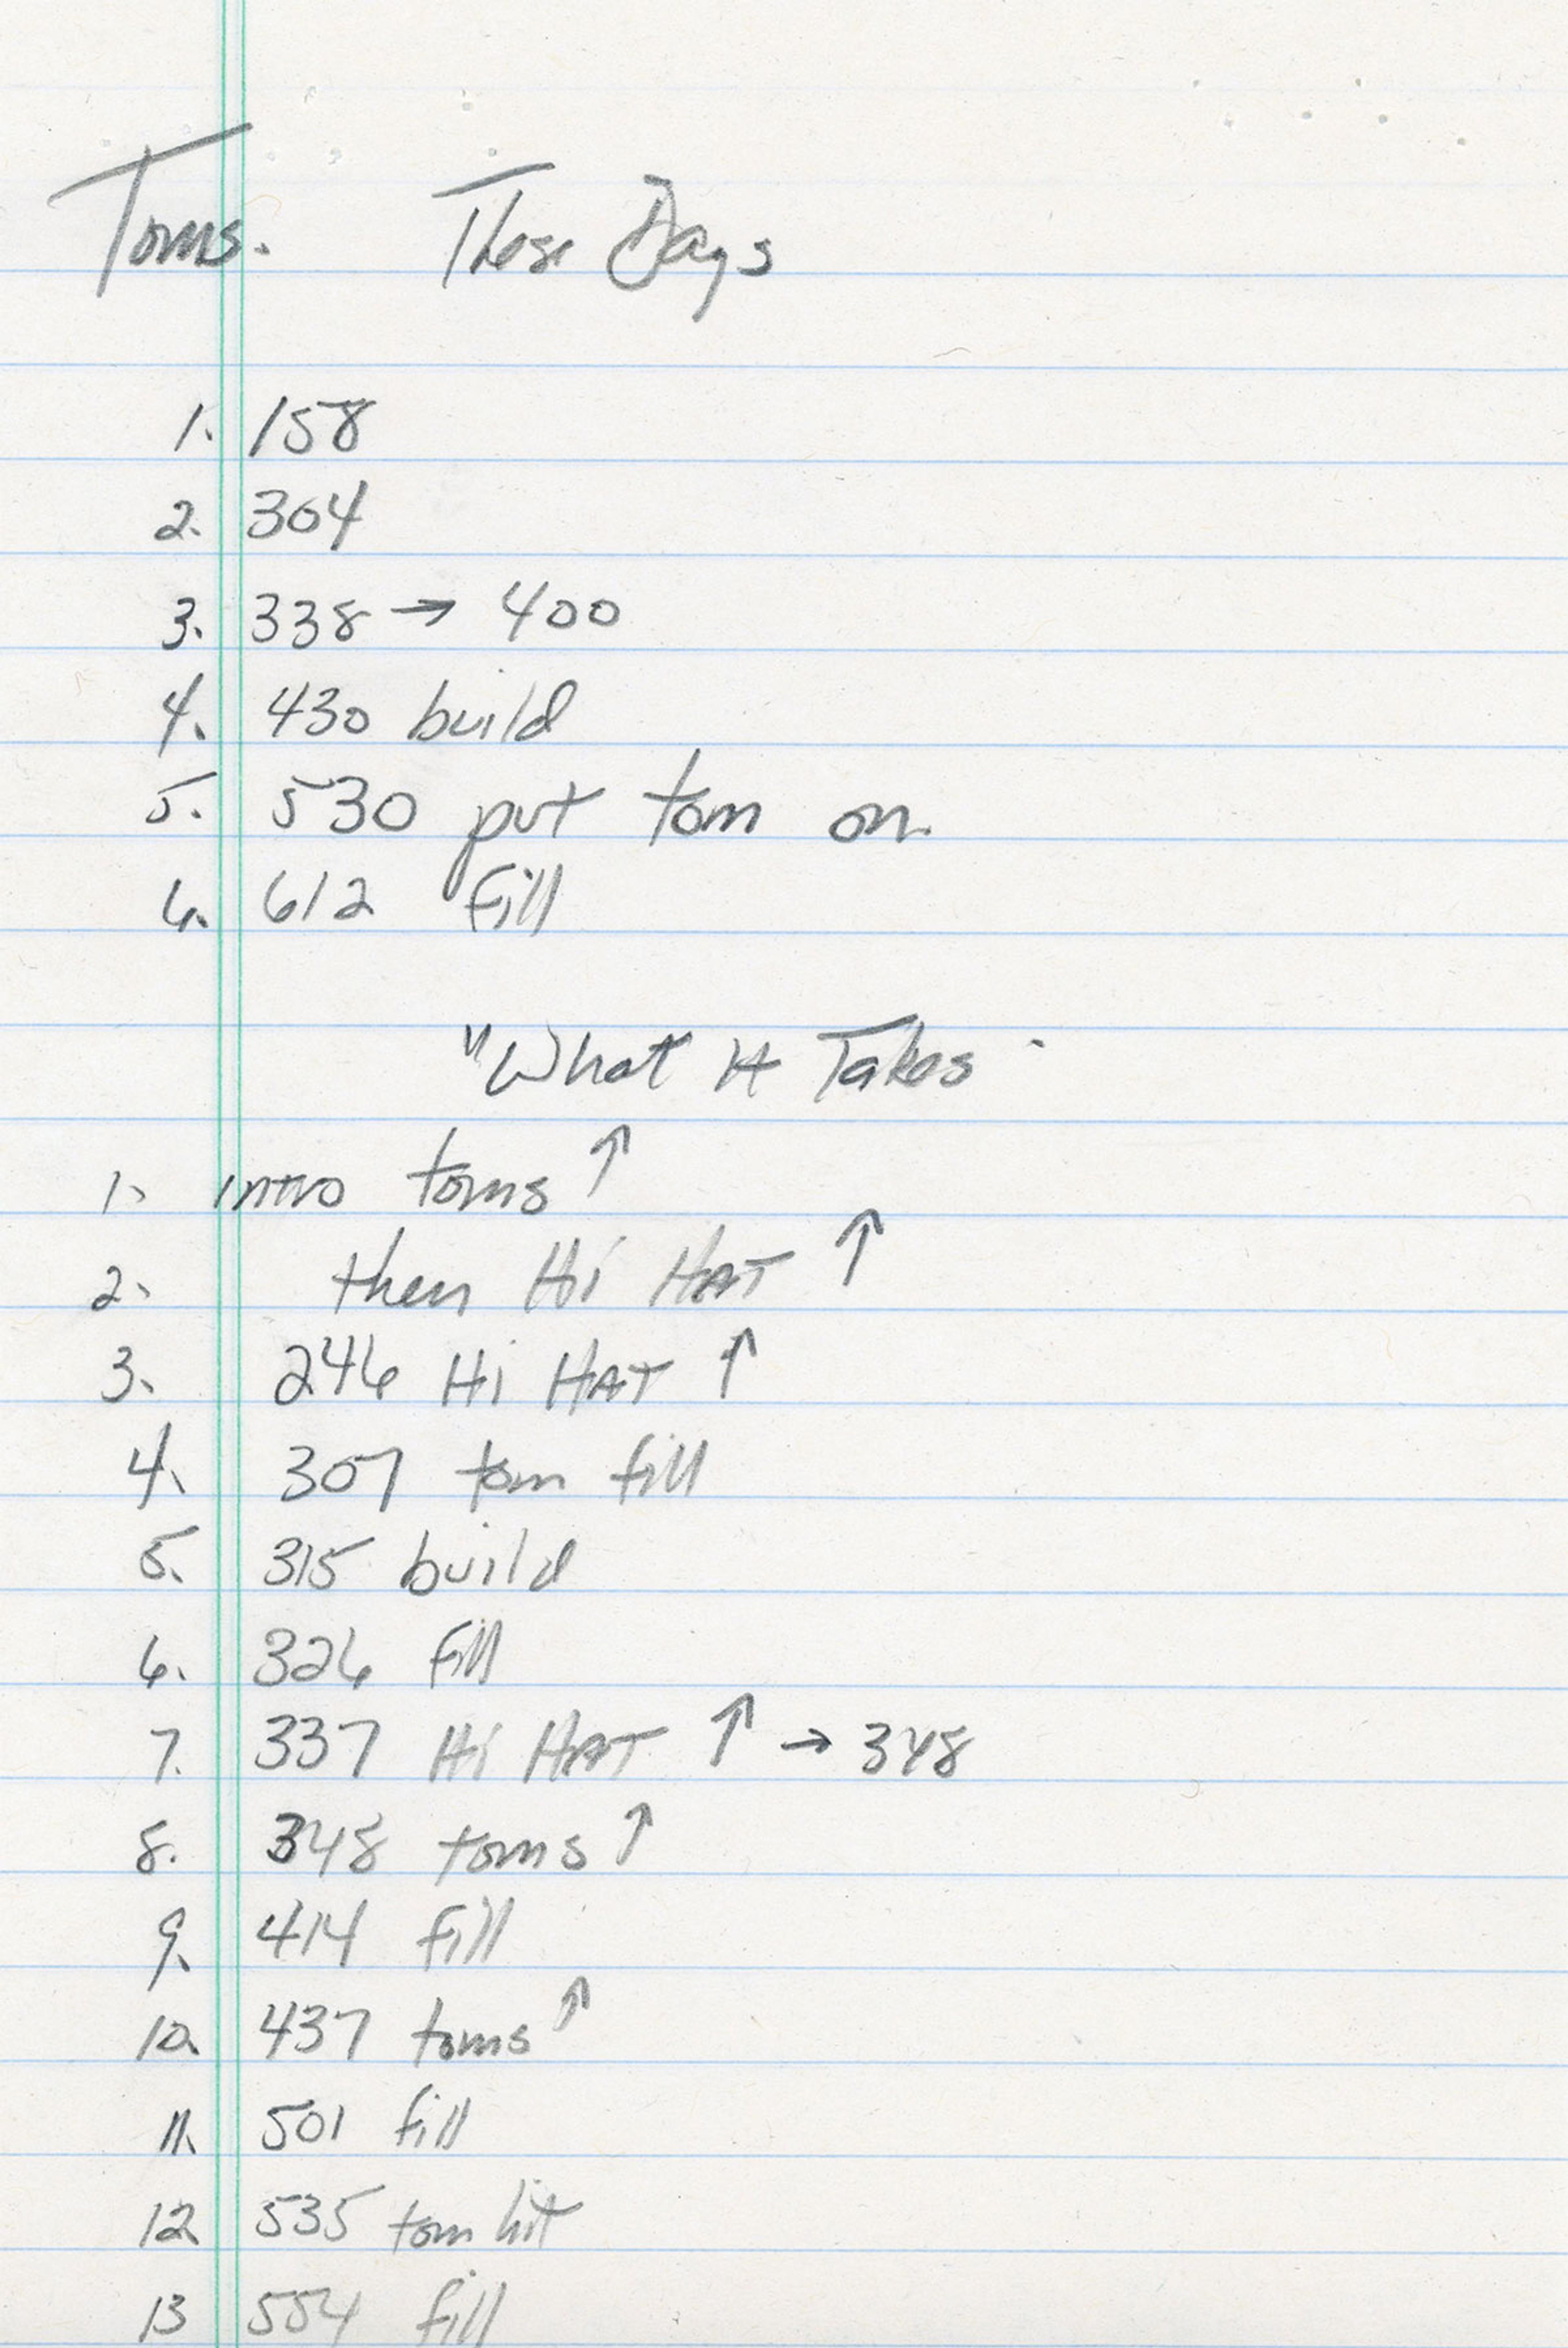 Toms. These Days
1. 158
2. 304
3. 338 → 400
4. 430 build
5. 530 put tom on.
6. 612 fill
"What It Takes"
1. intro toms ↑
2. then Hi HAT ↑
3. 246 Hi HAT ↑
4. 307 tom fill
5. 315 build
6. 326 fill
7. 337 Hi HAT ↑ → 348
8. 348 toms ↑
9. 414 fill
10. 437 toms ↑
11. 501 fill
12 535 tom hit
13 554 fill